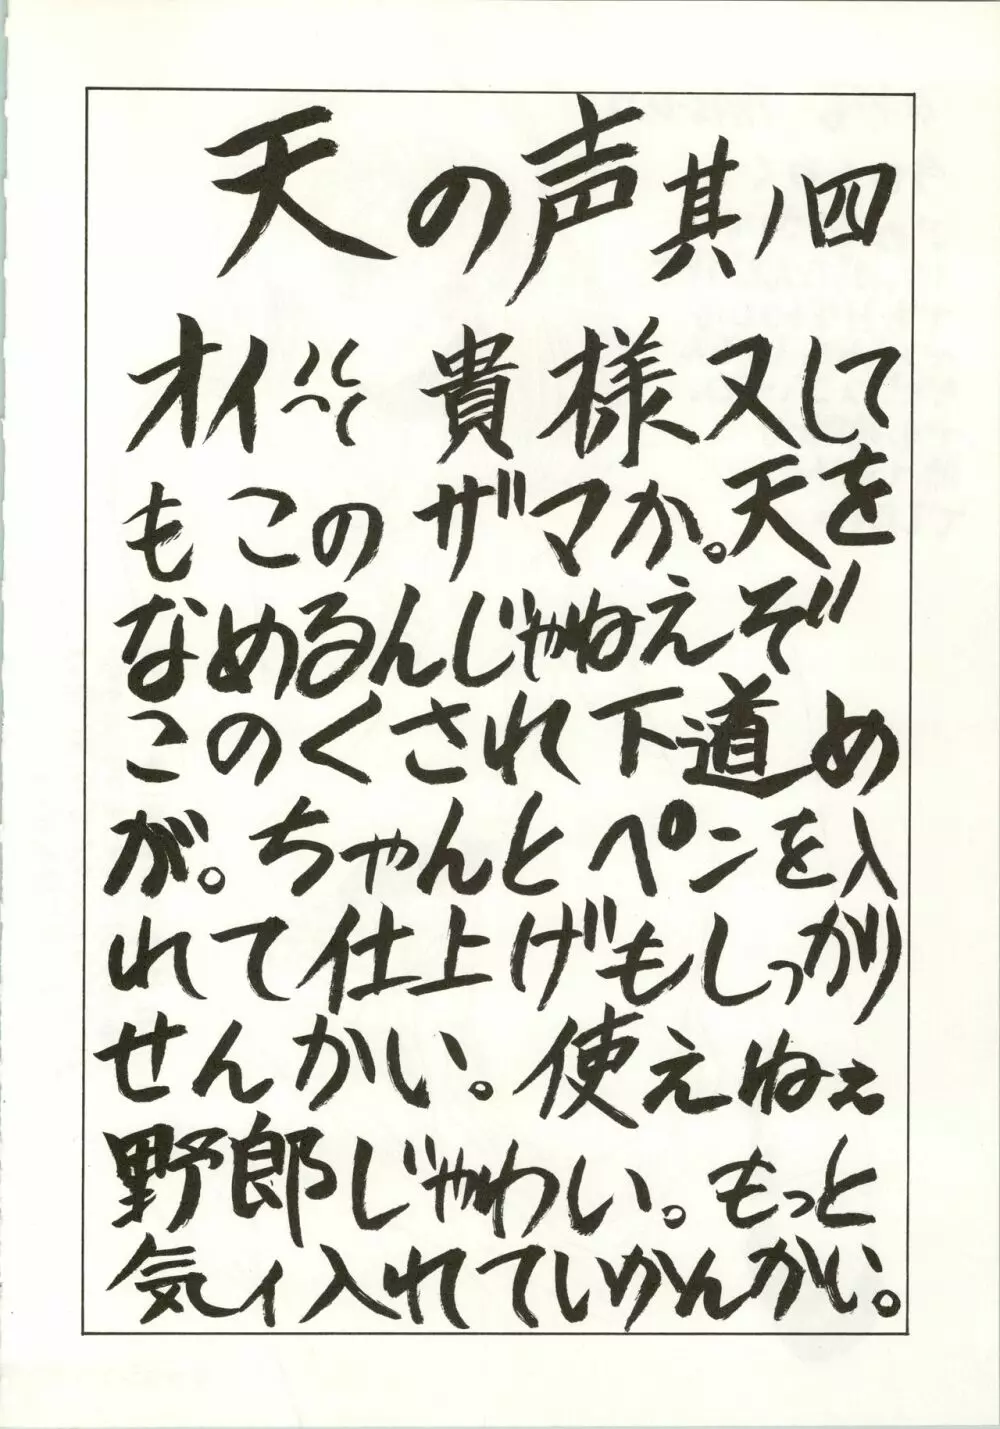 天の声其ノ四
オイ 貴様又して
もこのザマか。天を
なめるんじゃねえぞ
このくされ下道め
が。ちゃんとペンを入
れて仕上げもしっかり
せんかい。使えねェ
野郎じゃわい。もっと
気ィ入れていかんかい。